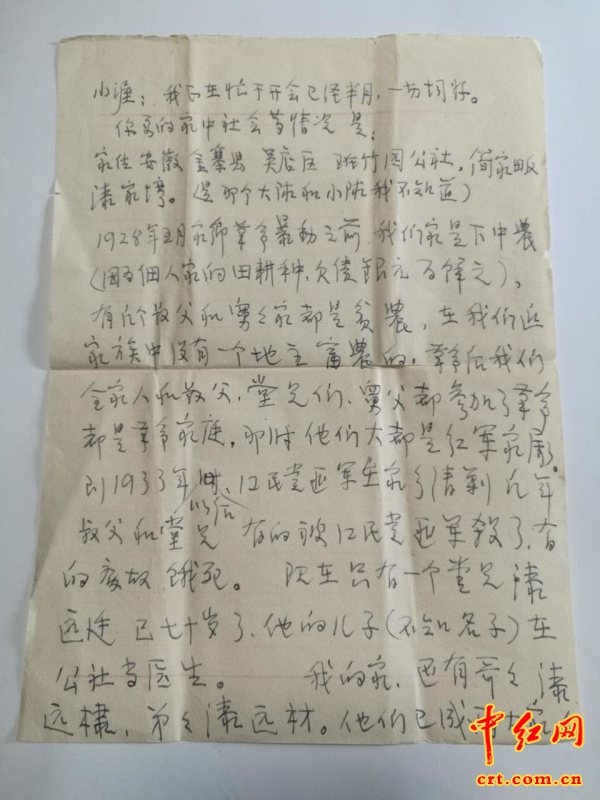 小潼：我正在忙于开会已经半月，一切均好。
你要的家中社会等情况是：
家住安徽金寨县吴店区斑竹园公社，简家畈
漆家塆。（是那个大队和小队我不知道）
1928年五月家乡革命暴动之前，我们家是下中農
（因为佃人家的田耕种、欠债銀元百馀元），
有几个叔父和舅々家都是贫農，在我们近
家族中没有一个地主富農的，革命后我们
全家人和叔父、堂兄们、舅父都参加了革命
都是革命家庭，那时他们大都是红军家属。
到1933年 以后 国民党匪军在家乡清剿几年
叔父和堂兄 有的被国民党匪军殺了、有
的 饿死。 现在只有一个堂兄漆
远 已七十岁了、他的儿子（不知名子）在
公社当医生。 我的家、还有哥々漆
远 、弟々漆远材。他们已成
中红网
crt.com.cn